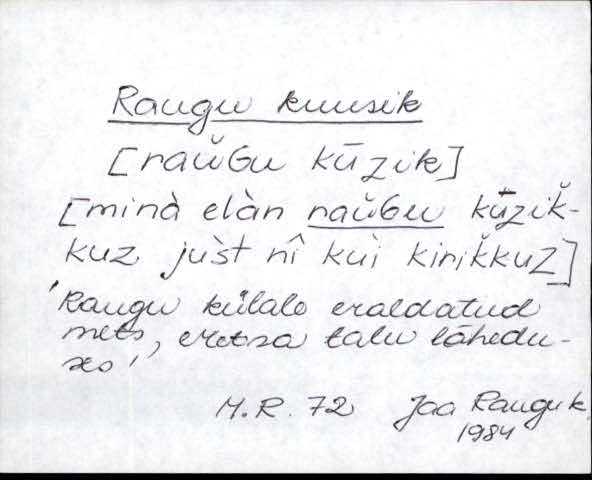 Raugu kuusik
[raŭGu kūzik]
[minà elàn raŭGu kūzik̆-
kuz jùst nî kùi kirik̆kuz]
'Raugu külale eraldatud
mets, eretsa talu lähedu-
ses'
M.R. 72 Jaa Raugu k.
1984